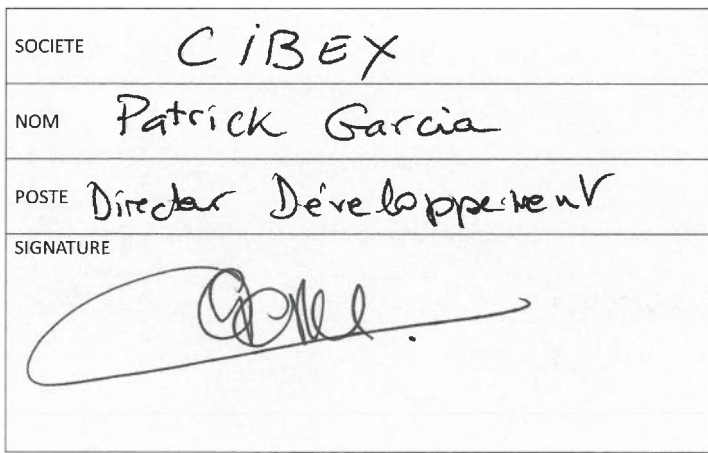 SOCIETE CiBEX
NOM Patrick Garcia
POSTE Directeur Développement
SIGNATURE